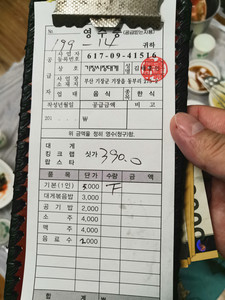 영 수 증 (공급받는자용)
No
199 - 14 귀하
사업자등록번호 617-09-41516
상 호 기장시장대게 성명
사업장소재지 부산 기장군 기장읍 동부리
업태 음 식 종목 한 식
작성년월일 공급금액 비 고
201 ₩
위 금액을 정히 영수(청구)함.
대 게
킹크랩 싯가 390.0
랍스타
품 목 단 가 수량 금 액
기본(1인) 5,000
대게볶음밥 3,000
공 기 밥 2,000
소 주 4,000
맥 주 4,000
음 료 수 2,000
합 계